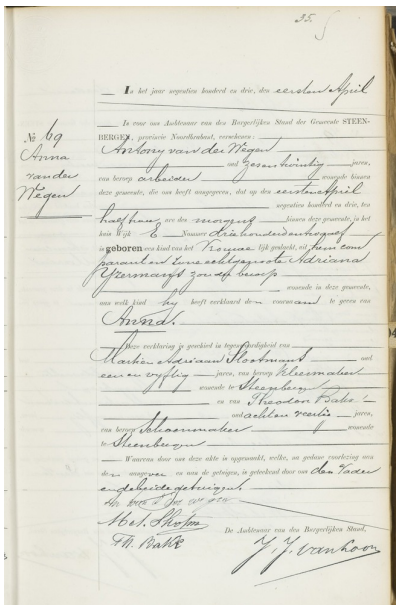 35.
In het jaar negentien honderd en drie, den eersten April
is voor ons Ambtenaar van den Burgerlijken Stand der Gemeente STEEN-
BERGEN, provincie Noordbrabant, verschenen:
No 69
Anna
van der
Wegen
Antony van der Wegen
oud zes en twintig jaren,
van beroep arbeider wonende binnen
deze gemeente, die ons heeft aangegeven, dat op den eersten April
negentien honderd en drie, ten
half tien ure des morgens binnen deze gemeente, in het
huis Wijk E Nommer driehonderd
is geboren een kind van het Vrouwelijk geslacht, uit hem com
parant en zijne echtgenoote Adriana
IJzermans zonder beroep
wonende in deze gemeente,
aan welk kind hij heeft verklaard den voornaam te geven van
Anna.
Deze verklaring is geschied in tegenwoordigheid van
Martien Adriaan Slootmans oud
een en vijftig jaren, van beroep Kleermaker
wonende te Steenbergen
en van Theodor Bakx
oud acht en veertig jaren,
van beroep Schoenmaker wonende
te Steenbergen
Waarvan door ons deze akte is opgemaakt, welke, na gedane voorlezing aan
den aangever en aan de getuigen, is geteekend door ons den Vader
en de beide getuigen
Th. Bakx
De Ambtenaar van den Burgerlijken Stand,
J. J. van Loon